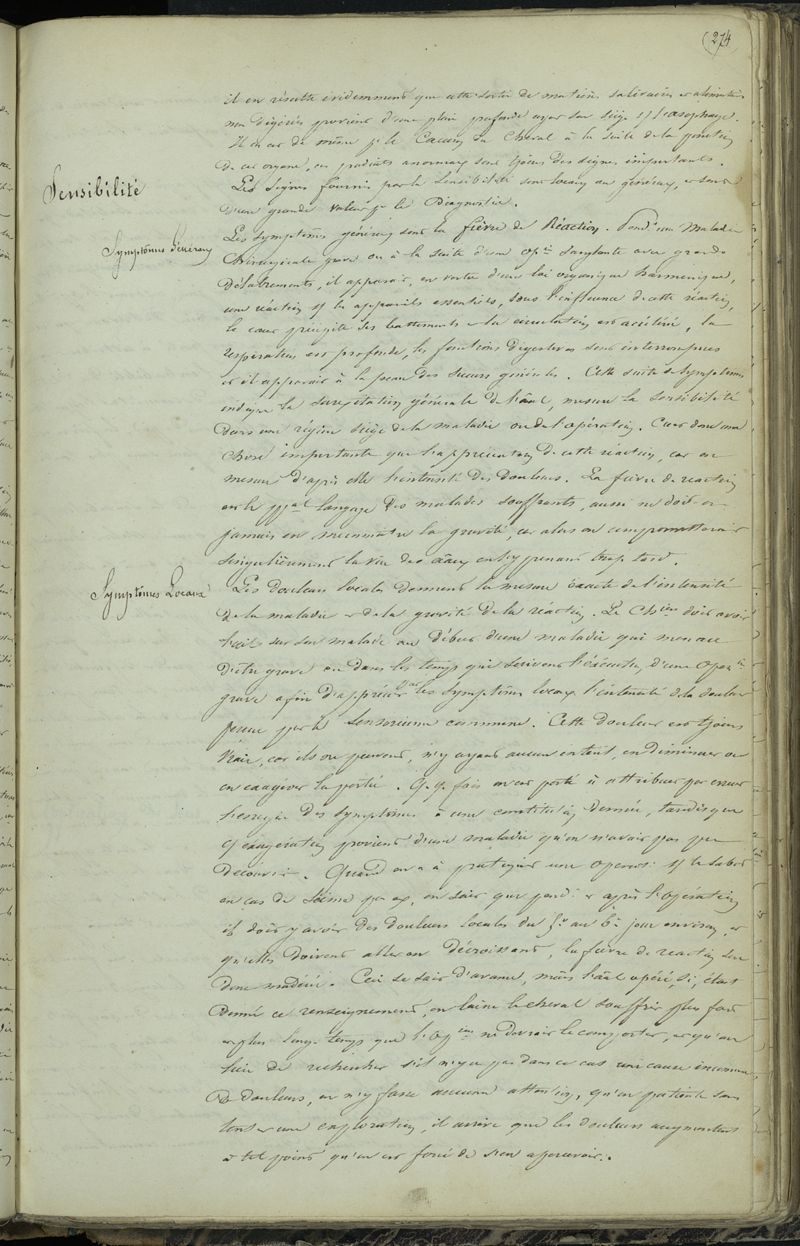 (274
il en résulte évidemment que cette sortie de matières salivaires et alimentaires
non digérées provient d'une plaie profonde ayant son siège s/ l'œsophage.
Il en est de même p. le Cœcum du Cheval à la suite de la ponction
de cet organe, ces produits anormaux sont tjours des signes importants.
Sensibilité
Les signes fournis par la sensibilité sont locaux ou généraux, et sont
d'une grande valeur p. le Diagnostic.
Symptômes Généraux
Les symptômes généraux sont la fièvre de Réaction. Pend.t une maladie
Chirurgicale grave ou à la suite d'une op.on sanglante avec grands
délabrements, il apparait, en vertu d'une loi organique harmonique,
une réaction s/ les appareils essentiels, sous l'influence de cette réaction,
le cœur précipite ses battements et la circulation est accélérée, la
respiration est profonde, les fonctions digestives sont interrompues
et il apparait à la peau des sueurs générales. Cette suite de symptômes
indique la surexcitation générale de l'anal, mesure la sensibilité
dans une région siège de la maladie ou de l'opération. C'est donc une
chose importante que l'appréciation de cette réaction, car on
mesure d'après elle l'intensité des douleurs. La fièvre de réaction
est le pp.al langage des malades souffrants, aussi ne doit-on
jamais en méconnaitre la gravité, car alors on compromettrait
singulièrement la vie des anaux en s'y prenant trop tard.
Symptômes Locaux
Les douleurs locales donnent la mesure exacte de l'intensité
de la maladie et de la gravité de la réaction. Le Ch.ien doit avoir
l'œil sur son malade au début d'une maladie qui menace
d'être grave ou dans les temps qui suivent l'exécution d'une opon
grave afin d'apprécier par les symptômes locaux l'intensité de la douleur
perçue par le sensorium commune. Cette douleur est tjours
vraie, car ils ne peuvent, n'y ayant aucun intérêt, en diminuer ou
en exagérer la portée. Q.q. fois on est porté à attribuer par erreur
l'énergie des symptômes à une constitution donnée, tandis que
cette exagération provient d'une maladie qu'on n'avait pas pu
découvrir. Quand on a à pratiquer une opérat. s/ le sabot
en cas de Seime par ex, on sait que pend.t et après l'opération
il doit y avoir des douleurs locales du 5.e au 6.e jour environ, et
qu'elles doivent aller en décroissant, la fièvre de réaction sera
donc modérée. Ceci se sait d'avance, mais l'anal opéré, si, étant
donné ce renseignement, on laisse le cheval souffrir plus fort
et plus longtemps que l'op.on ne devrait le comporter, et qu'au
lieu de rechercher s'il n'y a pas dans ce cas une cause inconnue
de douleurs, on n'y fasse aucune attention, qu'on patiente sans
tenter une exploration, il arrive que les douleurs augmentent
à tel point qu'on est forcé de s'en apercevoir.